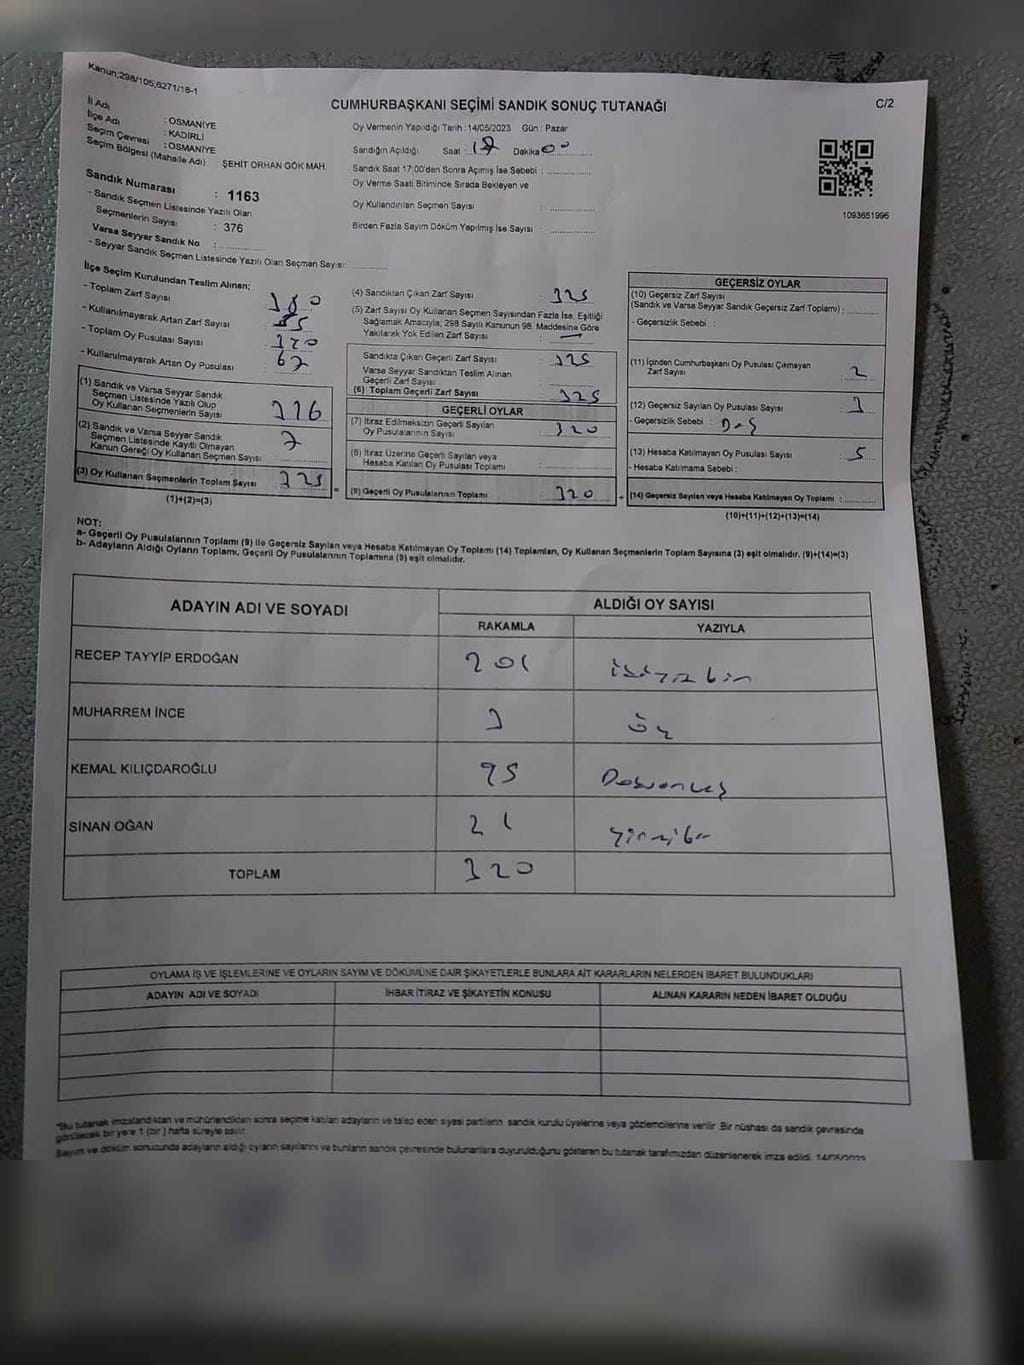 Kanun;298/105,6271/18-1
CUMHURBAŞKANI SEÇİMİ SANDIK SONUÇ TUTANAĞI
C/2
İl Adı : OSMANİYE
İlçe Adı : KADİRLİ
Seçim Çevresi : OSMANİYE
Seçim Bölgesi (Mahalle Adı) : ŞEHİT ORHAN GÖK MAH.
Sandık Numarası : 1163
- Sandık Seçmen Listesinde Yazılı Olan
Seçmenlerin Sayısı : 376
Varsa Seyyar Sandık No :
- Seyyar Sandık Seçmen Listesinde Yazılı Olan Seçmen Sayısı:
Oy Vermenin Yapıldığı Tarih :14/05/2023 Gün : Pazar
Sandığın Açıldığı Saat : Dakika 00
Sandık Saat 17:00'den Sonra Açımış İse Sebebi :
Oy Verme Saati Bitiminde Sırada Bekleyen ve
Oy Kullandırılan Seçmen Sayısı :
Birden Fazla Sayım Döküm Yapılmış İse Sayısı :
1093651996
İlçe Seçim Kurulundan Teslim Alınan;
- Toplam Zarf Sayısı 380
- Kullanılmayarak Artan Zarf Sayısı 55
- Toplam Oy Pusulası Sayısı
- Kullanılmayarak Artan Oy Pusulası
(1) Sandık ve Varsa Seyyar Sandık
Seçmen Listesinde Yazılı Olup
Oy Kullanan Seçmenlerin Sayısı
(2) Sandık ve Varsa Seyyar Sandık
Seçmen Listesinde Kayıtlı Olmayan
Kanun Gereği Oy Kullanan Seçmen Sayısı:
(3) Oy Kullanan Seçmenlerin Toplam Sayısı 325
(1)+(2)=(3)
(4) Sandıktan Çıkan Zarf Sayısı : 325
(5) Zarf Sayısı Oy Kullanan Seçmen Sayısından Fazla İse, Eşitliği
Sağlamak Amacıyla; 298 Sayılı Kanunun 98. Maddesine Göre
Yakılarak Yok Edilen Zarf Sayısı : —
Sandıkta Çıkan Geçerli Zarf Sayısı : 325
Varsa Seyyar Sandıktan Teslim Alınan
Geçerli Zarf Sayısı :
(6) Toplam Geçerli Zarf Sayısı : 325
GEÇERLİ OYLAR
(7) İtiraz Edilmeksizin Geçerli Sayılan
Oy Pusulalarının Sayısı : 320
(8) İtiraz Üzerine Geçerli Sayılan veya
Hesaba Katılan Oy Pusulası Toplamı :
(9) Geçerli Oy Pusulalarının Toplamı : 320
GEÇERSİZ OYLAR
(10) Geçersiz Zarf Sayısı
(Sandık ve Varsa Seyyar Sandık Geçersiz Zarf Toplamı) :
- Geçersizlik Sebebi :
(11) İçinden Cumhurbaşkanı Oy Pusulası Çıkmayan
Zarf Sayısı : 2
(12) Geçersiz Sayılan Oy Pusulası Sayısı : 3
- Geçersizlik Sebebi :
(13) Hesaba Katılmayan Oy Pusulası Sayısı : 5
- Hesaba Katılmama Sebebi :
(14) Geçersiz Sayılan veya Hesaba Katılmayan Oy Toplamı :
(10)+(11)+(12)+(13)=(14)
NOT:
a- Geçerli Oy Pusulalarının Toplamı (9) ile Geçersiz Sayılan veya Hesaba Katılmayan Oy Toplamı (14) Toplamları, Oy Kullanan Seçmenlerin Toplam Sayısına (3) eşit olmalıdır. (9)+(14)=(3)
b- Adayların Aldığı Oyların Toplamı, Geçerli Oy Pusulalarının Toplamına (9) eşit olmalıdır.
ADAYIN ADI VE SOYADI ALDIĞI OY SAYISI
RAKAMLA YAZIYLA
RECEP TAYYİP ERDOĞAN 201 ikiyüzbir
MUHARREM İNCE 3 üç
KEMAL KILIÇDAROĞLU 95 Doksanbeş
SİNAN OĞAN 21 yirmibir
TOPLAM 320
OYLAMA İŞ VE İŞLEMLERİNE VE OYLARIN SAYIM VE DÖKÜMÜNE DAİR ŞİKAYETLERLE BUNLARA AİT KARARLARIN NELERDEN İBARET BULUNDUKLARI
ADAYIN ADI VE SOYADI İHBAR İTİRAZ VE ŞİKAYETİN KONUSU ALINAN KARARIN NEDEN İBARET OLDUĞU
*Bu tutanak imzalandıktan ve mühürlendikten sonra seçime katılan adayların ve talep eden siyasi partilerin sandık kurulu üyelerine veya gözlemcilerine verilir. Bir nüshası da sandık çevresinde
görülecek bir yere 1 (bir) hafta süreyle asılır.
Sayım ve döküm sonucunda adayların aldığı oyların sayılarını ve bunların sandık çevresinde bulunanlara duyurulduğunu gösteren bu tutanak tarafımızdan düzenlenerek imza edildi. 14/05/2023